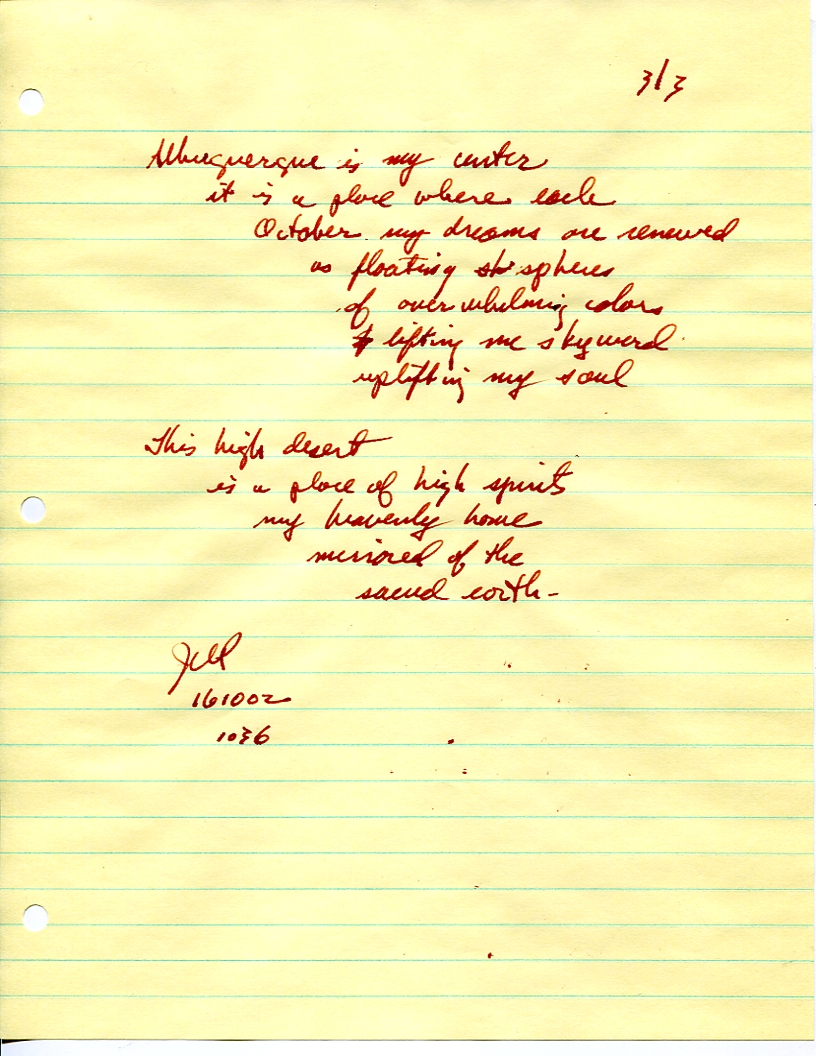 3/3
Albuquerque is my center
it is a place where each
October my dreams are renewed
as floating spheres
of overwhelming colors
lifting me skyward
uplifting my soul
This high desert
is a place of high spirits
my heavenly home
mirrored of the
sacred earth-
161002
1036